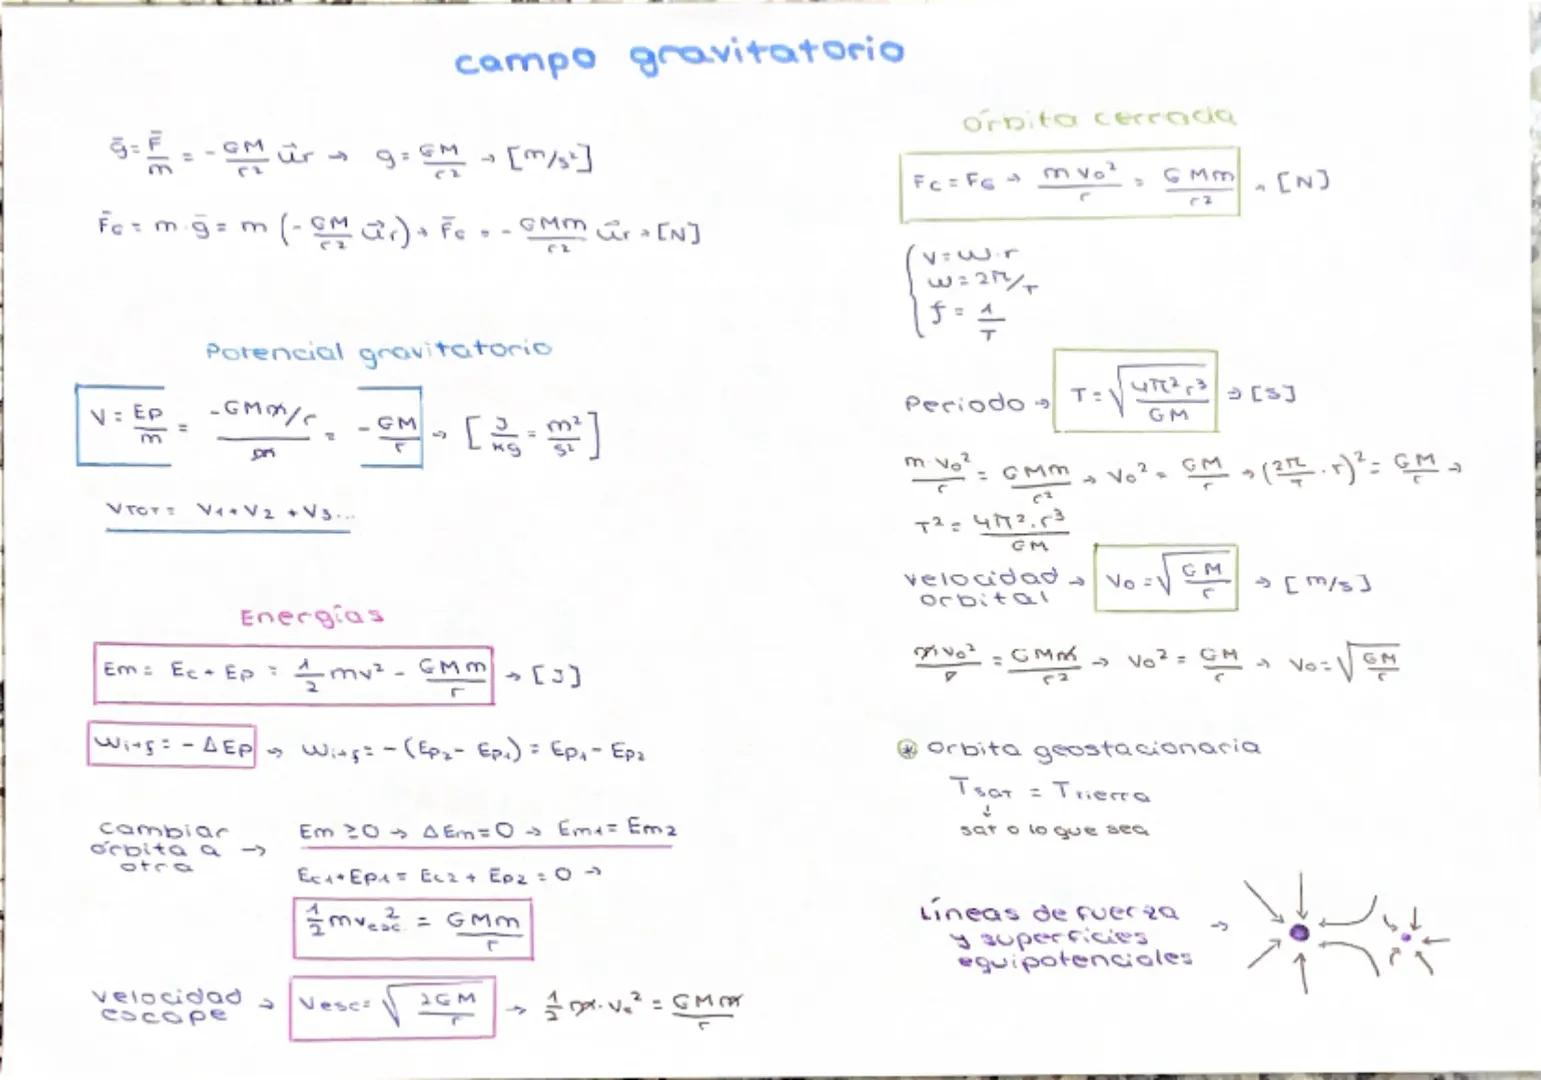 campo gravitatorio
ḡ = F̄/m = - GM/r² u⃗r → g = GM/r² → [m/s²]
F̄G = m·ḡ = m (- GM/r² u⃗r) → F̄G = - GMm/r² u⃗r → [N]
Potencial gravitatorio
V = Ep/m = -GMm/r / m = - GM/r → [J/kg = m²/s²]
VTOT = V1 + V2 + V3...
Energías
Em = Ec + Ep = 1/2 mv² - GMm/r → [J]
Wi→f = - ΔEp → Wi→f = - (Ep2 - Ep1) = Ep1 - Ep2
cambiar
órbita a →
otra
Em ≥ 0 → ΔEm = 0 → Em1 = Em2
Ec1 + Ep1 = Ec2 + Ep2 = 0 →
1/2 mvesc² = GMm/r
velocidad →
escape
Vesc = √(2GM/r) → 1/2 m·Ve² = GMm/r
órbita cerrada
Fc = FG → m vo²/r = GMm/r² → [N]
V = w·r
w = 2π/T
f = 1/T
Periodo → T = √(4π²r³/GM) → [s]
m·vo²/r = GMm/r² → vo² = GM/r → (2π/T·r)² = GM/r →
T² = 4π²·r³/GM
velocidad →
orbital
Vo = √(GM/r) → [m/s]
mvo²/r = GMm/r² → Vo² = GM/r → Vo = √(GM/r)
* órbita geostacionaria
Tsat = Ttierra
↓
sat o lo que sea
Líneas de fuerza →
y superficies
equipotenciales